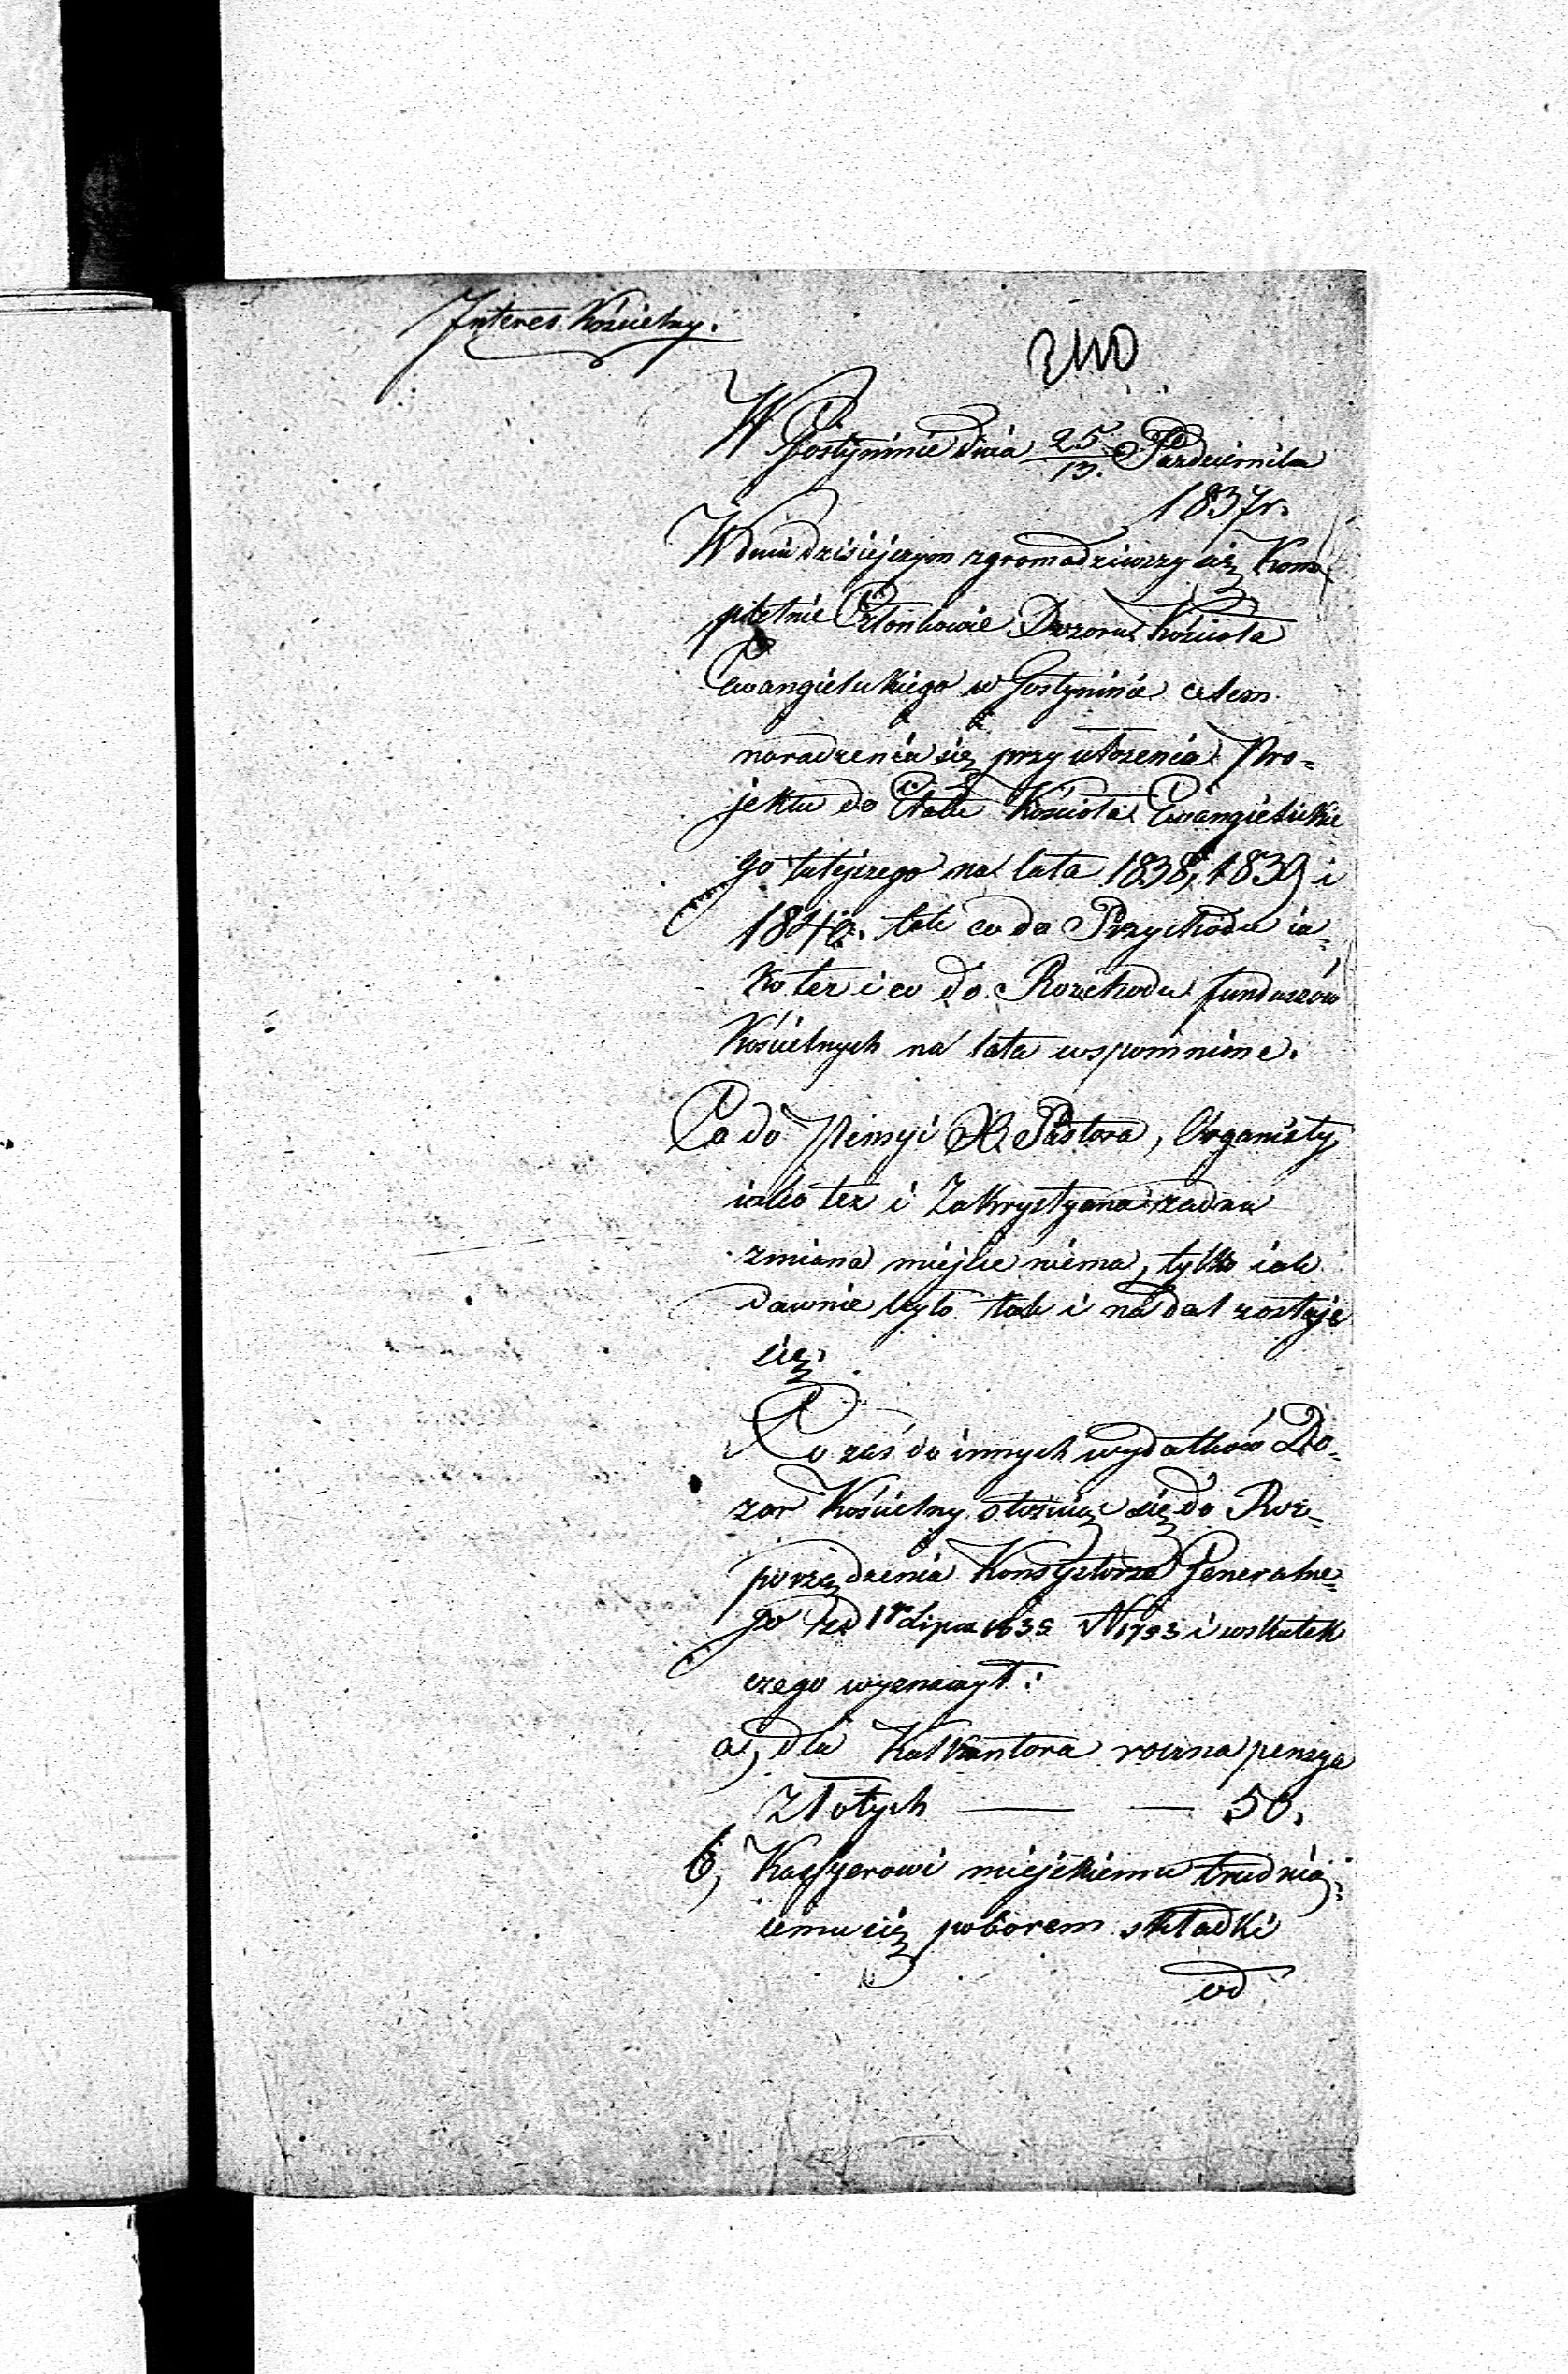 Interes Kościelny.
240
W Gostyninie dnia 25/13. Pazdziernika
1837r.
W dniu dzisiejszym zgromadziwszy się Kom=
pletnie Członkowie Dozoru Kościoła
Ewangielickiego w Gostyninie celem
naradzenia się przy ułożenia Pro=
jektu do Etatu Kościoła Ewangielickie
go tutejszego na lata 1838, 1839 i
1840. tak co do Przychodu ia=
ko tez i co do Rozchodu funduszów
Kościelnych na lata wspomnione.
Co do Pensyi X. Pastora, Organisty
iako tez i Zakrystyana żadna
zmiana miejsce niema, tylko iak
dawnie było tak i nadal zostaje
się.
Co zaś do innych wydatków Do=
zor Kościelny stosuiąc się do Roz=
porządzenia Konsystorza Generalne=
go z d 1º Lipca 1835 N 1793 i wskutek
czego wyznaczył:
a, dla Kalkantora roczna pensya
Złotych — — 50.
b, Kassyerowi miejskiemu trudnią=
cemu się poborem składki
od